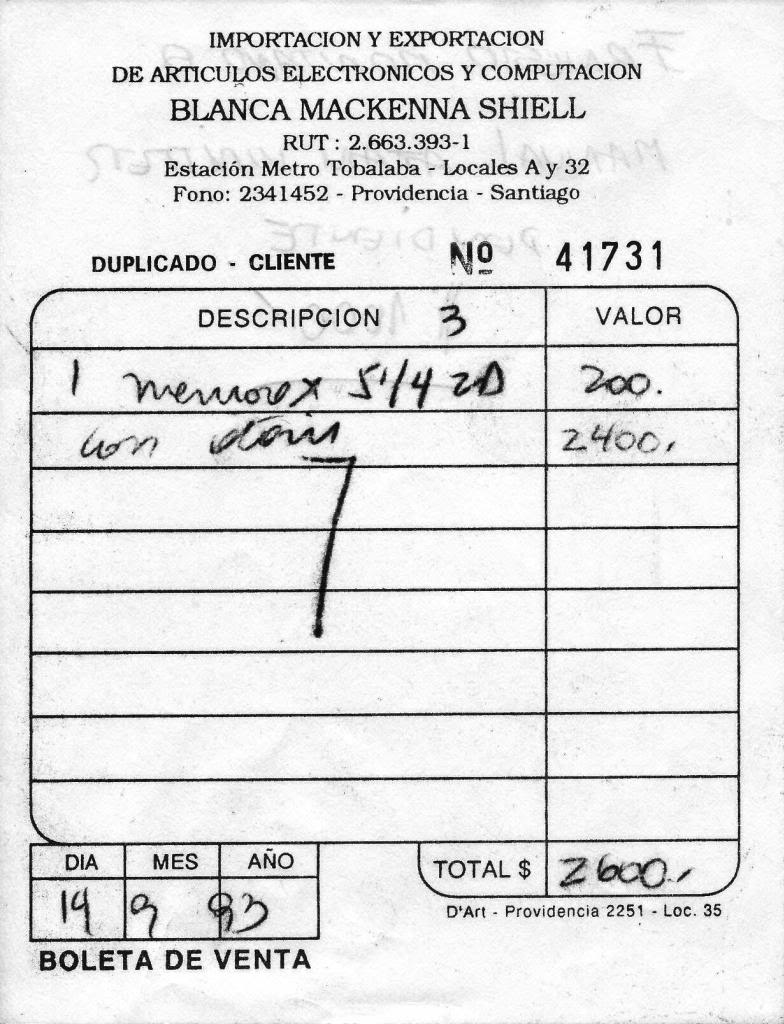 IMPORTACION Y EXPORTACION
DE ARTICULOS ELECTRONICOS Y COMPUTACION
BLANCA MACKENNA SHIELL
RUT : 2.663.393-1
Estación Metro Tobalaba - Locales A y 32
Fono: 2341452 - Providencia - Santiago
DUPLICADO - CLIENTE Nº 41731
DESCRIPCION 3 VALOR
1 memorex 5 1/4 2D 200.
con 2400.
DIA MES AÑO TOTAL $ 2600.
19 9 93
D'Art - Providencia 2251 - Loc. 35
BOLETA DE VENTA